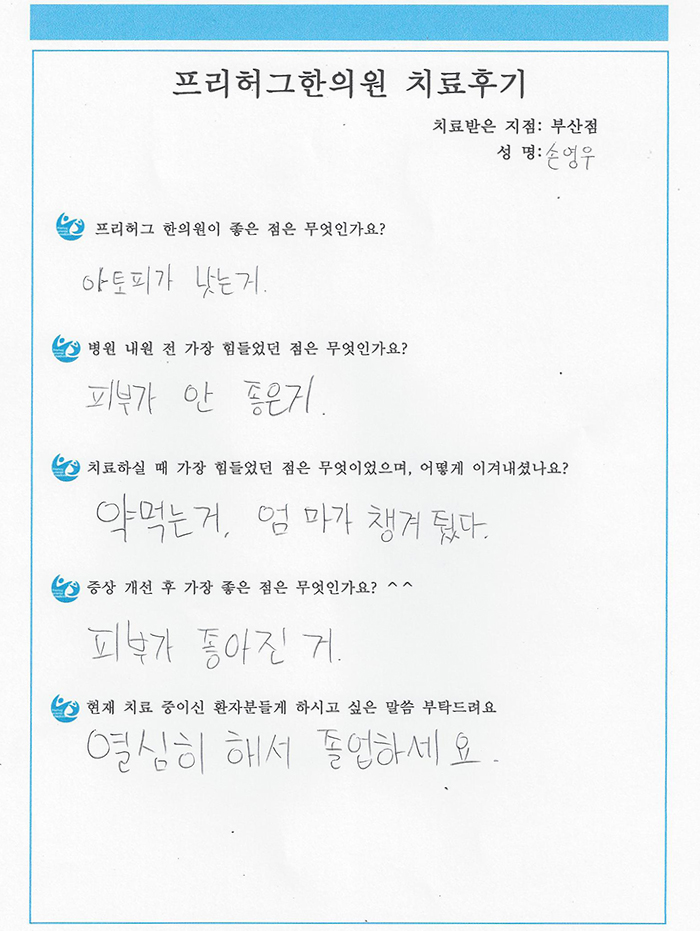 프리허그한의원 치료후기
치료받은 지점: 부산점
성 명:손영우
프리허그 한의원이 좋은 점은 무엇인가요?
아토피가 낫는거.
병원 내원 전 가장 힘들었던 점은 무엇인가요?
피부가 안 좋은거.
치료하실 때 가장 힘들었던 점은 무엇이었으며, 어떻게 이겨내셨나요?
약먹는거, 엄마가 챙겨 줬다.
증상 개선 후 가장 좋은 점은 무엇인가요? ^^
피부가 좋아진 거.
현재 치료 중이신 환자분들게 하시고 싶은 말씀 부탁드려요
열심히 해서 졸업하세요.